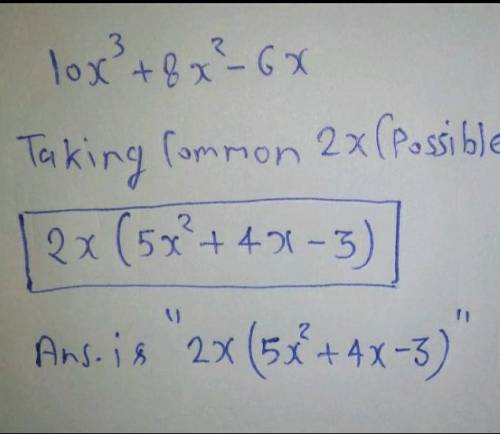 10x³ + 8x² - 6x
Taking Common 2x (Possible
2x (5x² + 4x - 3)
Ans. is "2x (5x² + 4x - 3)"